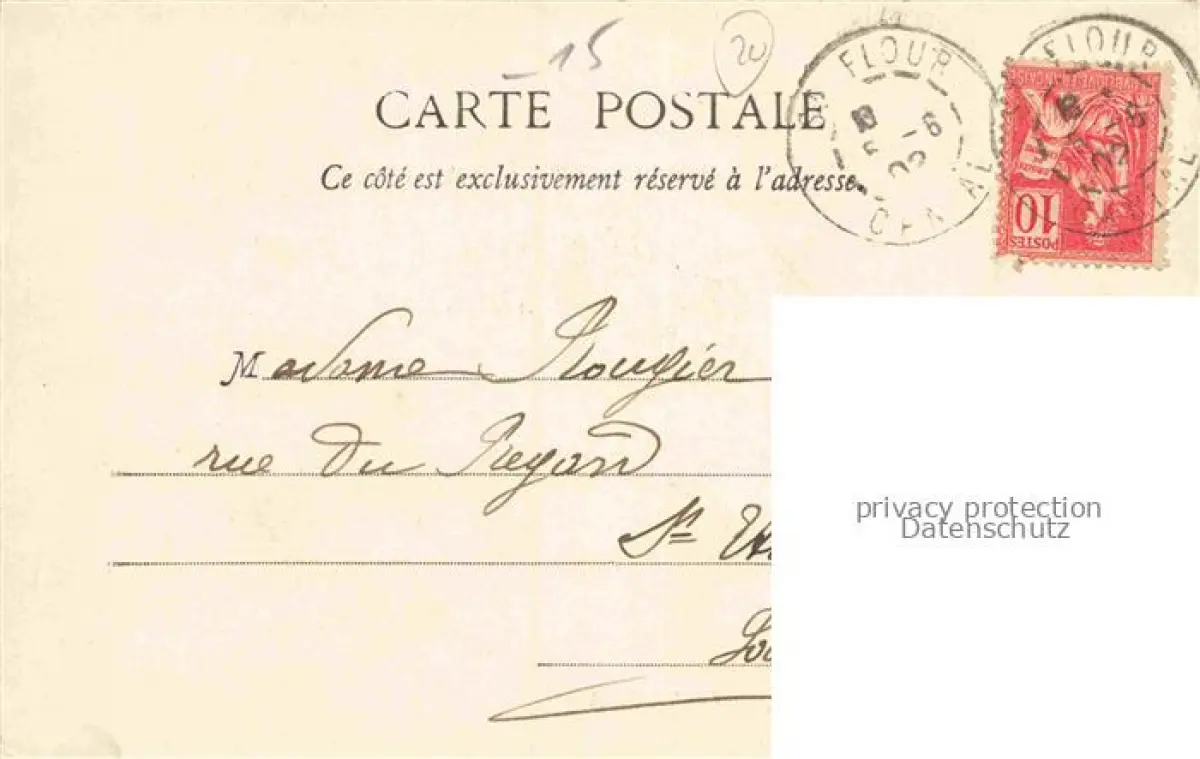 15
20
CARTE POSTALE
Ce côté est exclusivement réservé à l'adresse.
FLOUR
FLOUR
-6
CAN AL
POSTES
10
Madame Rougier
rue du Regard
St
privacy protection
Datenschutz